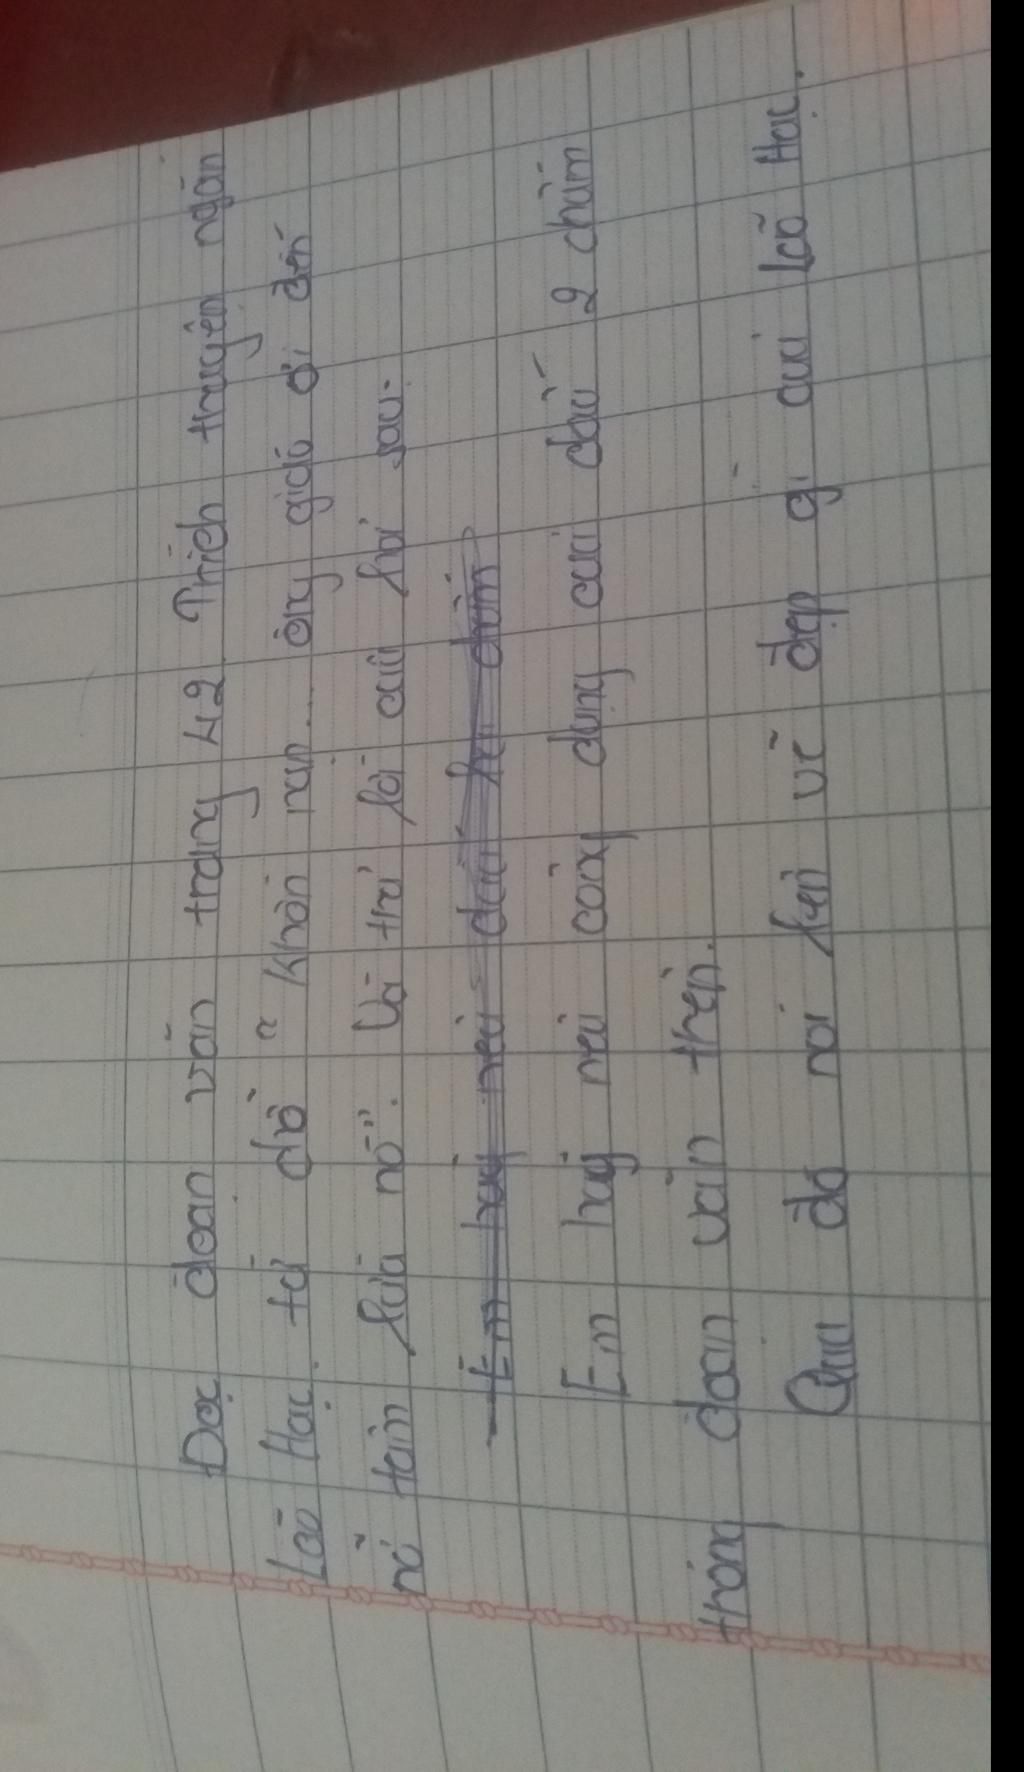 Đọc đoạn văn trang 42 Trích truyện ngắn
Lão Hạc. từ chỗ " Khốn nạn.... ông giáo ơi đến
nỡ tâm lừa nó". Và trả lời câu hỏi sau.
- Em hãy nêu dấu hai chấm
Em hãy nêu công dụng của dấu 2 chấm
trong đoạn văn trên.
Qua đó nói lên vẽ đẹp gì của Lão Hạc.